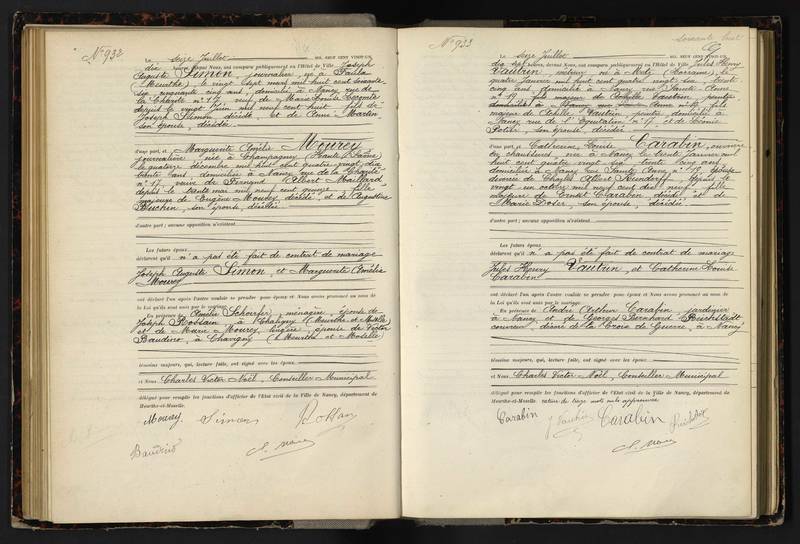 N° 932
Le Seize Juillet MIL NEUF CENT VINGT-UN,
dix heures, devant Nous, ont comparu publiquement en l'Hôtel de Ville, Joseph
Auguste Simon, journalier, né à
(Meurthe), le vingt sept mars mil huit cent soixante
cinq ans, domicilié à Nancy, rue de
la Charité n° 17, veuf de Marie
depuis le vingt Juin mil neuf cent huit, fils de
Joseph Simon décédé, et de Anne Martin
son épouse, décédée
d'une part, et Marguerite Amélie Mourey
journalière, née à Champagney (Haute Saône)
le quatorze décembre mil huit cent quatre vingt dix
trente ans, domiciliée à Nancy, rue de la Charité
n° 17, veuve de Fernand Albert Maillard
depuis le trente mai mil neuf cent quinze, fille
majeure de Eugène Mourey décédé, et de Augustine
son épouse décédée
d'autre part; aucune opposition n'existant.
Les futurs époux
déclarent qu'il n'a pas été fait de contrat de mariage
Joseph Auguste Simon, et Marguerite Amélie
Mourey
ont déclaré l'un après l'autre vouloir se prendre pour époux et Nous avons prononcé au nom de
la Loi qu'ils sont unis par le mariage.
En présence de Amélie ménagère, épouse de
Joseph à Chaligny (Meurthe et Moselle)
et de Marie Mourey, lingère, épouse de Victor
Baudino, à Chavigny (Meurthe et Moselle)
témoins majeurs, qui, lecture faite, ont signé avec les époux
et Nous Charles Victor Noël, Conseiller Municipal
délégué pour remplir les fonctions d'officier de l'Etat civil de la Ville de Nancy, département de
Meurthe-et-Moselle.
Mourey Simon
Baudino
N° 933
soixante huit
Le Seize Juillet MIL NEUF CENT VINGT-UN,
dix heures, devant Nous, ont comparu publiquement en l'Hôtel de Ville, Jules Henry
Vautrin, né à Metz (Lorraine), le
quatre janvier mil huit cent quatre vingt six, trente
cinq ans, domicilié à Nancy, rue Sainte Anne
n° 19, fils majeur de Achille Vautrin, peintre
domicilié à Nancy, rue Anne n° 19, fils
majeur de Achille Vautrin, peintre, domicilié à
Nancy, rue de l'Equitation n° 17, et de
son épouse, décédée
d'une part, et Catherine Louise Carabin, ouvrière
en chaussures, née à Nancy le trente janvier mil
huit cent quatre vingt six, trente cinq ans,
domiciliée à Nancy, rue Sainte Anne, n° 19, épouse
divorcée de Charles Albert depuis le
vingt un octobre mil neuf cent dix neuf, fille
majeure de Ernest Carabin décédé et de
Marie son épouse, décédée
d'autre part; aucune opposition n'existant.
Les futurs époux
déclarent qu'il n'a pas été fait de contrat de mariage
Jules Henry Vautrin, et Catherine Louise
Carabin
ont déclaré l'un après l'autre vouloir se prendre pour époux et Nous avons prononcé au nom de
la Loi qu'ils sont unis par le mariage.
En présence de André Arthur Carabin, jardinier
à Nancy et de Georges Bernhard
couvreur, décoré de la Croix de Guerre, à Nancy
témoins majeurs, qui, lecture faite, ont signé avec les époux
et Nous Charles Victor Noël, Conseiller Municipal
délégué pour remplir les fonctions d'officier de l'Etat civil de la Ville de Nancy, département de
Meurthe-et-Moselle. mots nuls approuvée
Carabin J Vautrin Carabin